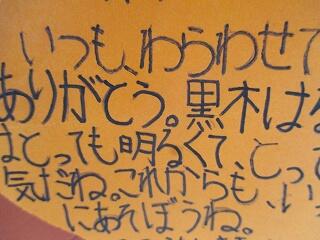 いつも、わらわせて
ありがとう。黒木は
はとっても明るくて、とって
気だね。これからも、い
にあそぼうね。